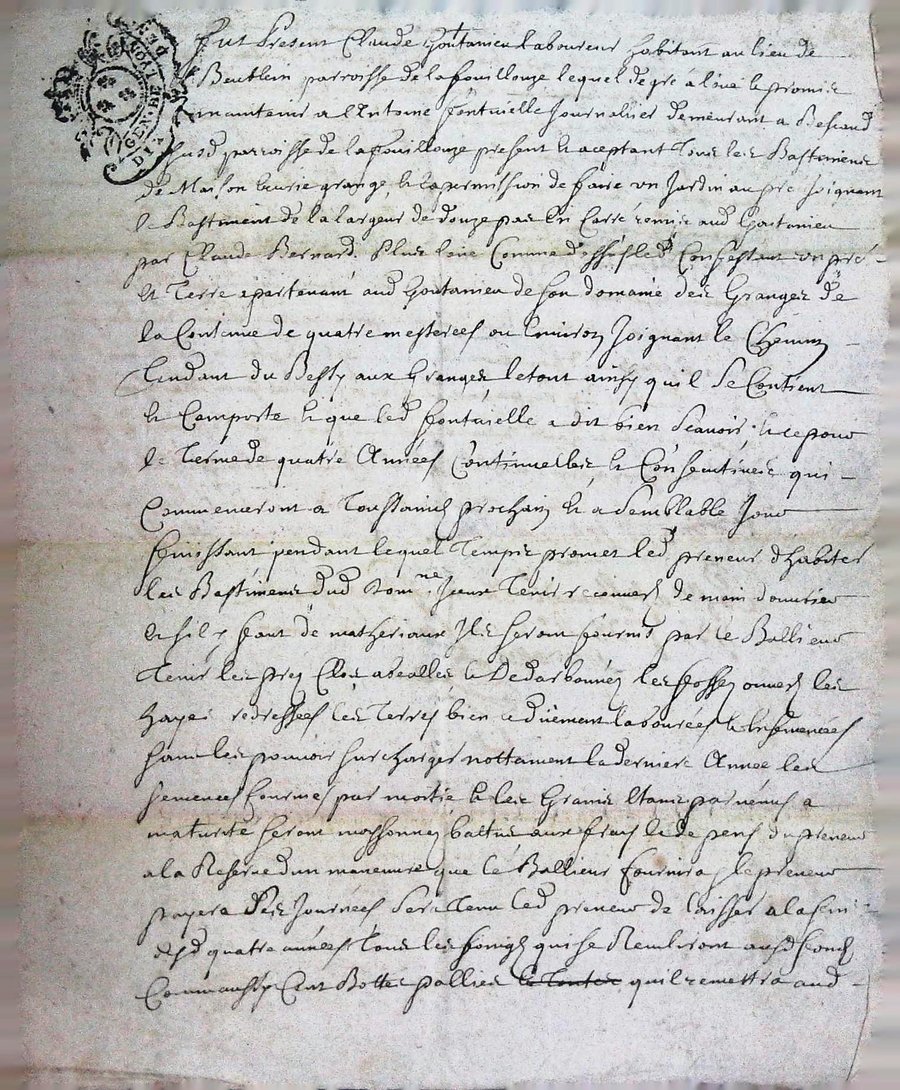 GEN DE LYON
Fut Present Claude Goutanieu laboureur habitant au lieu de
parroisse de la fouillouze lequel de gré a loué le promis
maintenir a Antoine fontvielle Journalier demeurant a
susd parroisse de la fouillouze present et aceptant Tous les Bastiments
de Maison Ecurie grange, et la permission de faire un Jardin au pré Joignant
le Bastiment de la largeur de douze pas En Carré remis aud Goutanieu
par Claude Bernard. Plus loue Comme dessus led un pré
et Terre apartenant aud Goutanieu de son domaine des Granges de
la Contenue de quatre mesterees ou Environ Joignant le Chemin
Tendant du Bessy aux Granges le tout ainsy qu'il se Contient
et Comporte et que led fontvielle a dit bien scavoir, et ce pour
le Terme de quatre Années Continuelles et Consecutives qui
Commenceront a Toussaints prochain et a semblable Jour
finissant pendant lequel Temps promet led preneur d'habiter
les Bastiments dud Dom.ne Iceux Tenir recouverts de main d'ouvrier
et s'il y faut de matheriaux Ils seront fournis par le Bailleur
Tenir les prez Clos les fossez ouverts les
hayes redressees les Terres bien et duement labourées et Ensemencées
sans les pouvoir surcharger nottament la derniere Année les
semences fournies par moitié et les Grains Etants parvenus a
maturité seront moissonnez battus aux frais et de pens du preneur
a la Reserve d'un maneuvre que le Bailleur fournira le preneur
payera des Journées sera Tenu led preneur de laisser a la fin
desd quatre années Tous les foings qui se aud fonds
Comm'aussy Cent Bottes pallies qu'il remettra aud